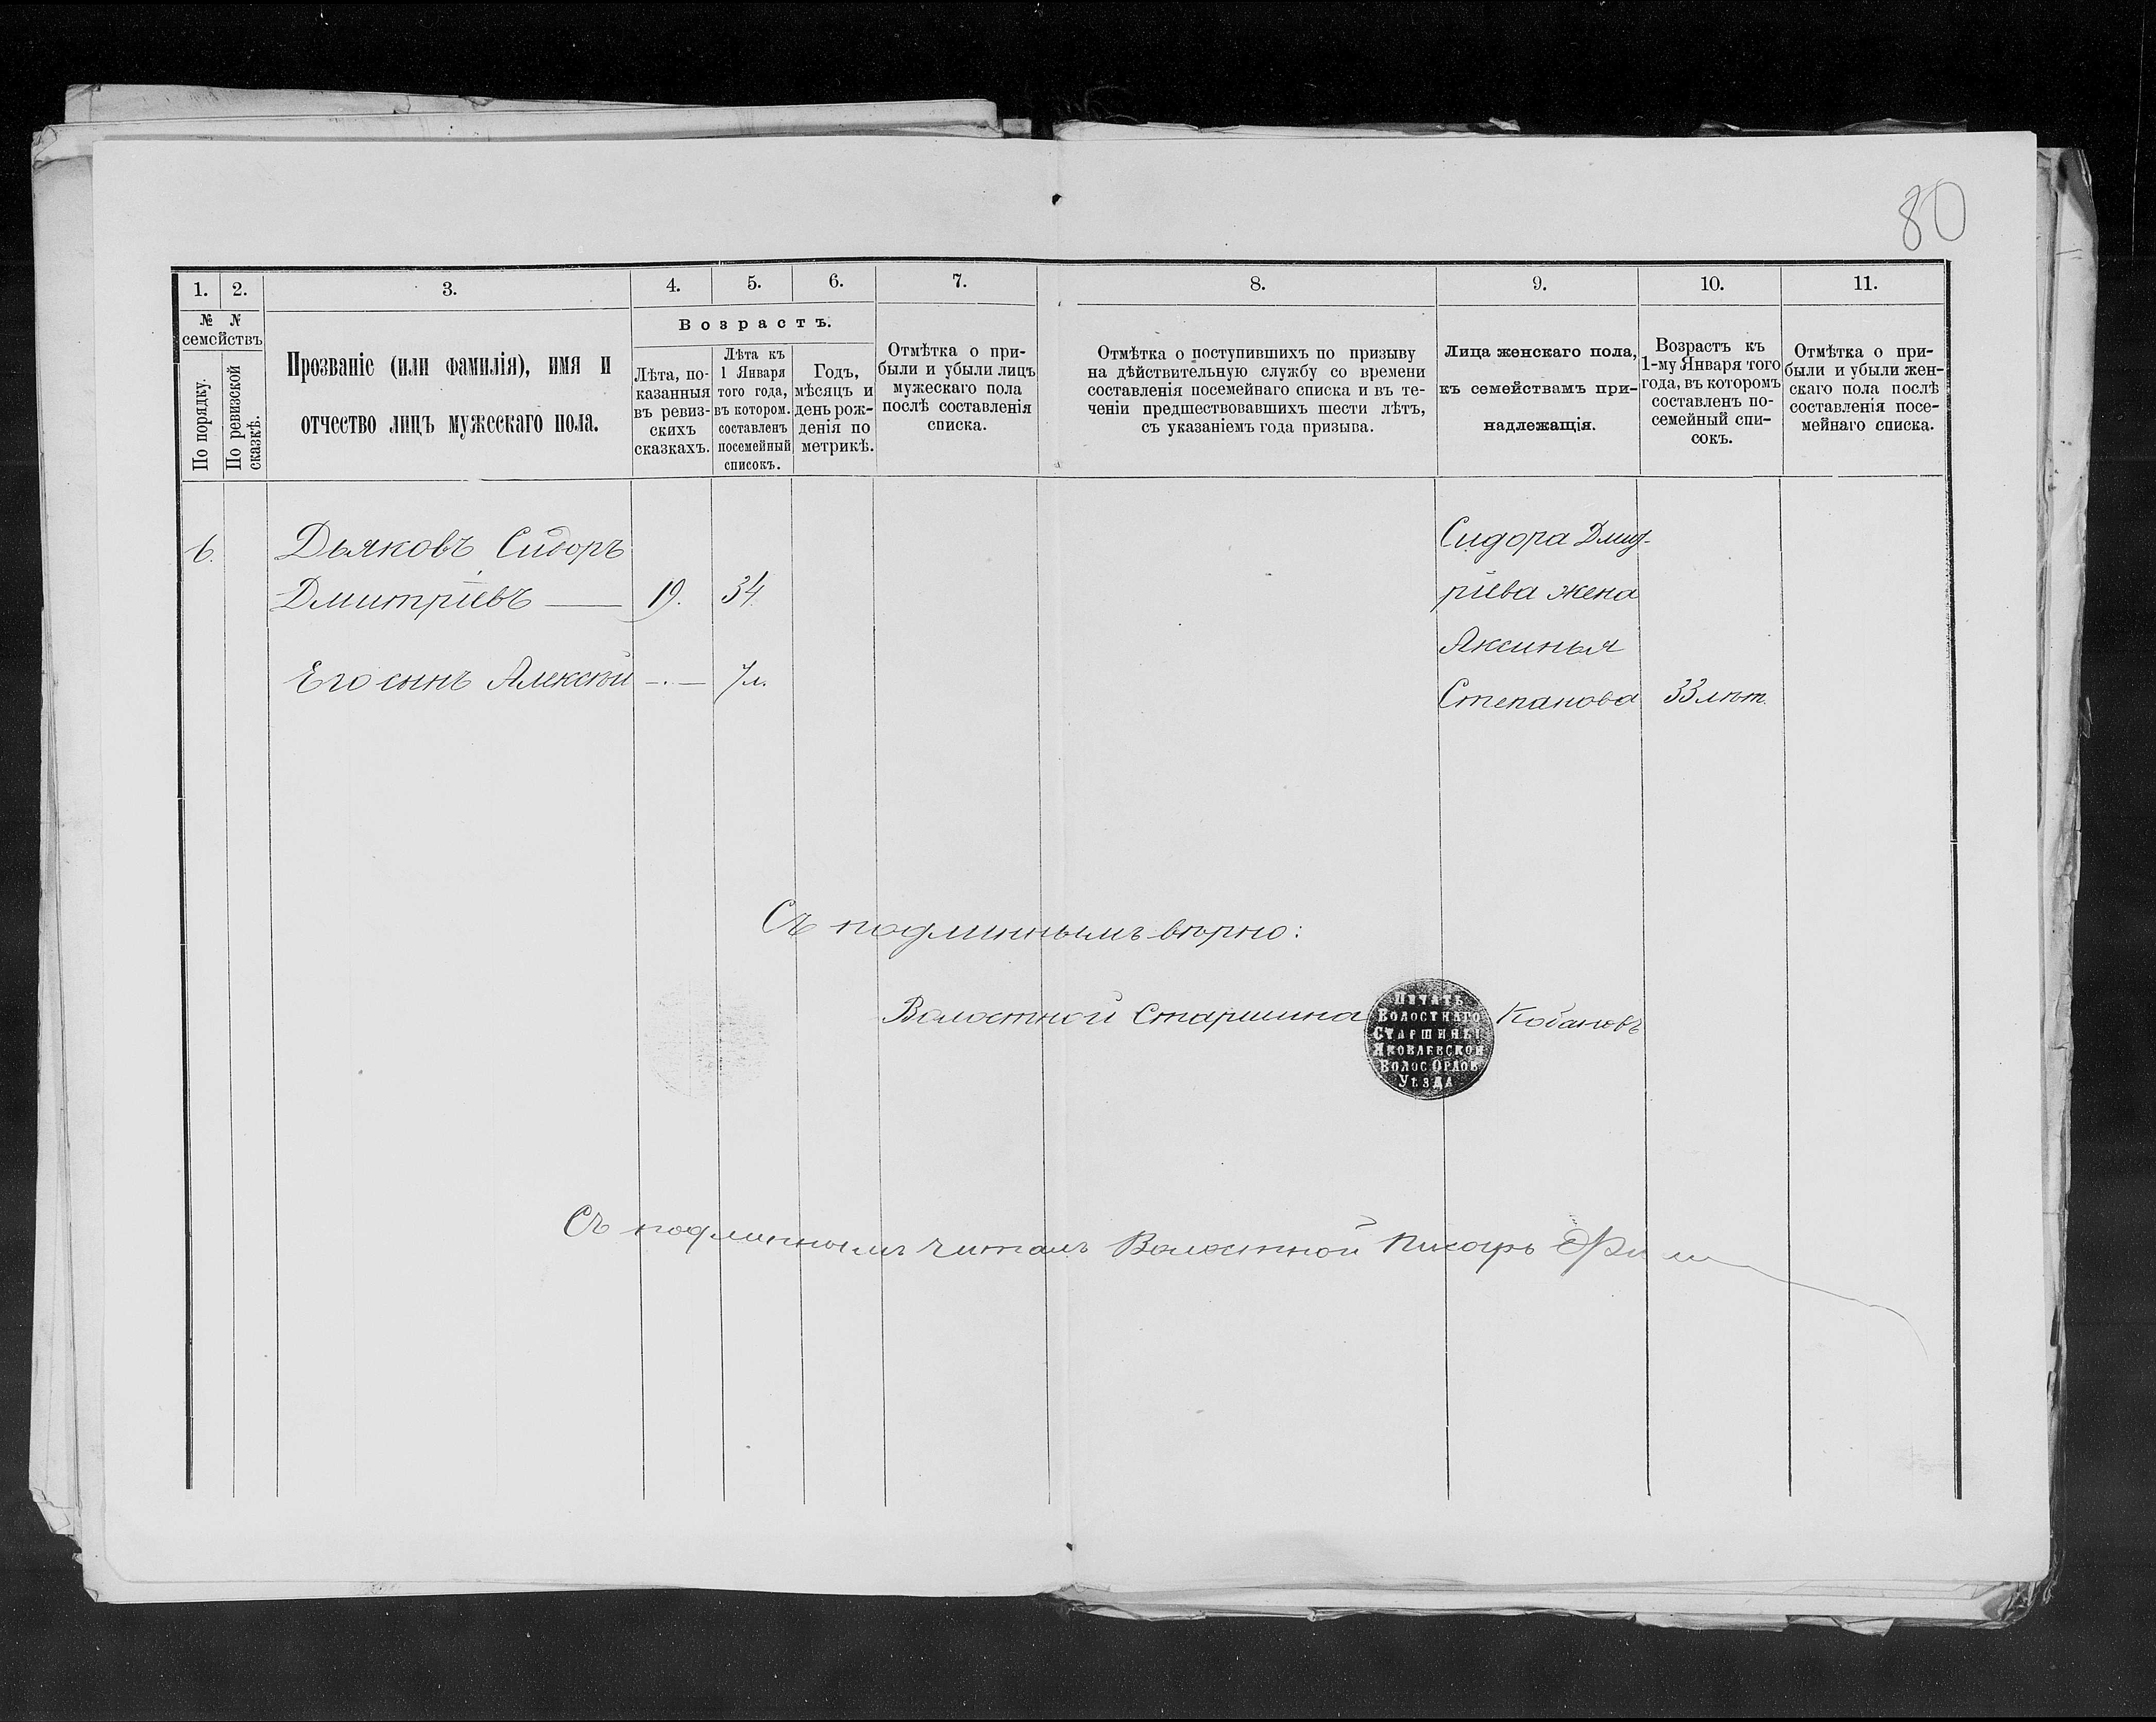 80
1. 2. 3. 4. 5. 6. 7. 8. 9. 10. 11.
№ №
семействъ
По порядку.
По ревизской
сказкѣ.
Прозваніе (или фамилія), имя и
отчество лицъ мужескаго пола.
Возрастъ.
Лѣта, по-
казанныя
въ ревиз-
скихъ
сказкахъ.
Лѣта къ
1 Января
того года,
въ котором.
составленъ
посемейный
списокъ.
Годъ,
мѣсяцъ и
день рож-
денія по
метрикѣ.
Отмѣтка о при-
были и убыли лицъ
мужескаго пола
послѣ составленія
списка.
Отмѣтка о поступившихъ по призыву
на дѣйствительную службу со времени
составленія посемейнаго списка и въ те-
ченіи предшествовавшихъ шести лѣтъ,
съ указаніемъ года призыва.
Лица женскаго пола,
къ семействамъ при-
надлежащія.
Возрастъ къ
1-му Января того
года, въ которомъ
составленъ по-
семейный спи-
сокъ.
Отмѣтка о при-
были и убыли жен-
скаго пола послѣ
составленія посе-
мейнаго списка.
6. Дьяковъ Сидоръ
Дмитріевъ — 19. 34.
Его сынъ Алексѣй —.— 7 л.
Сидора Дмит-
ріева жена
Аксинья
Степанова 33 лѣт.
Съ подлиннымъ вѣрно:
Волостной Старшина Кобановъ
Печать
Волостнаго
Старшины
Яковлевской
Волос Орлов
Уѣзда
Съ подлиннымъ читалъ Волостной Писарь